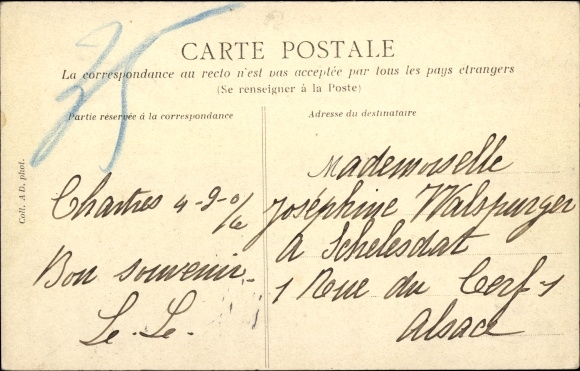 35
CARTE POSTALE
La correspondance au recto n'est pas acceptée par tous les pays étrangers
(Se renseigner à la Poste)
Partie réservée à la correspondance
Adresse du destinataire
Coll. AD. phot.
Chartres 4-9-
Bon souvenir.
Le. Le.
Mademoiselle
Joséphine Walspurger
à Schelesdat
1 Rue du Cerf-1
Alsace